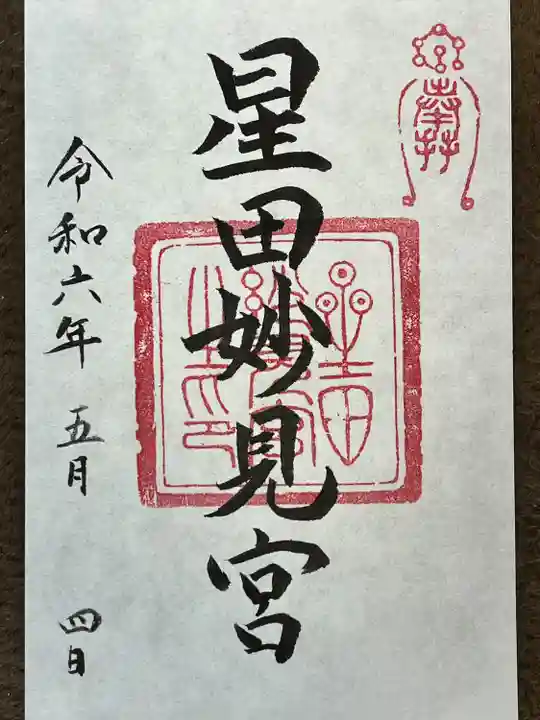 奉拝
星田妙見宮
令和六年 五月 四日